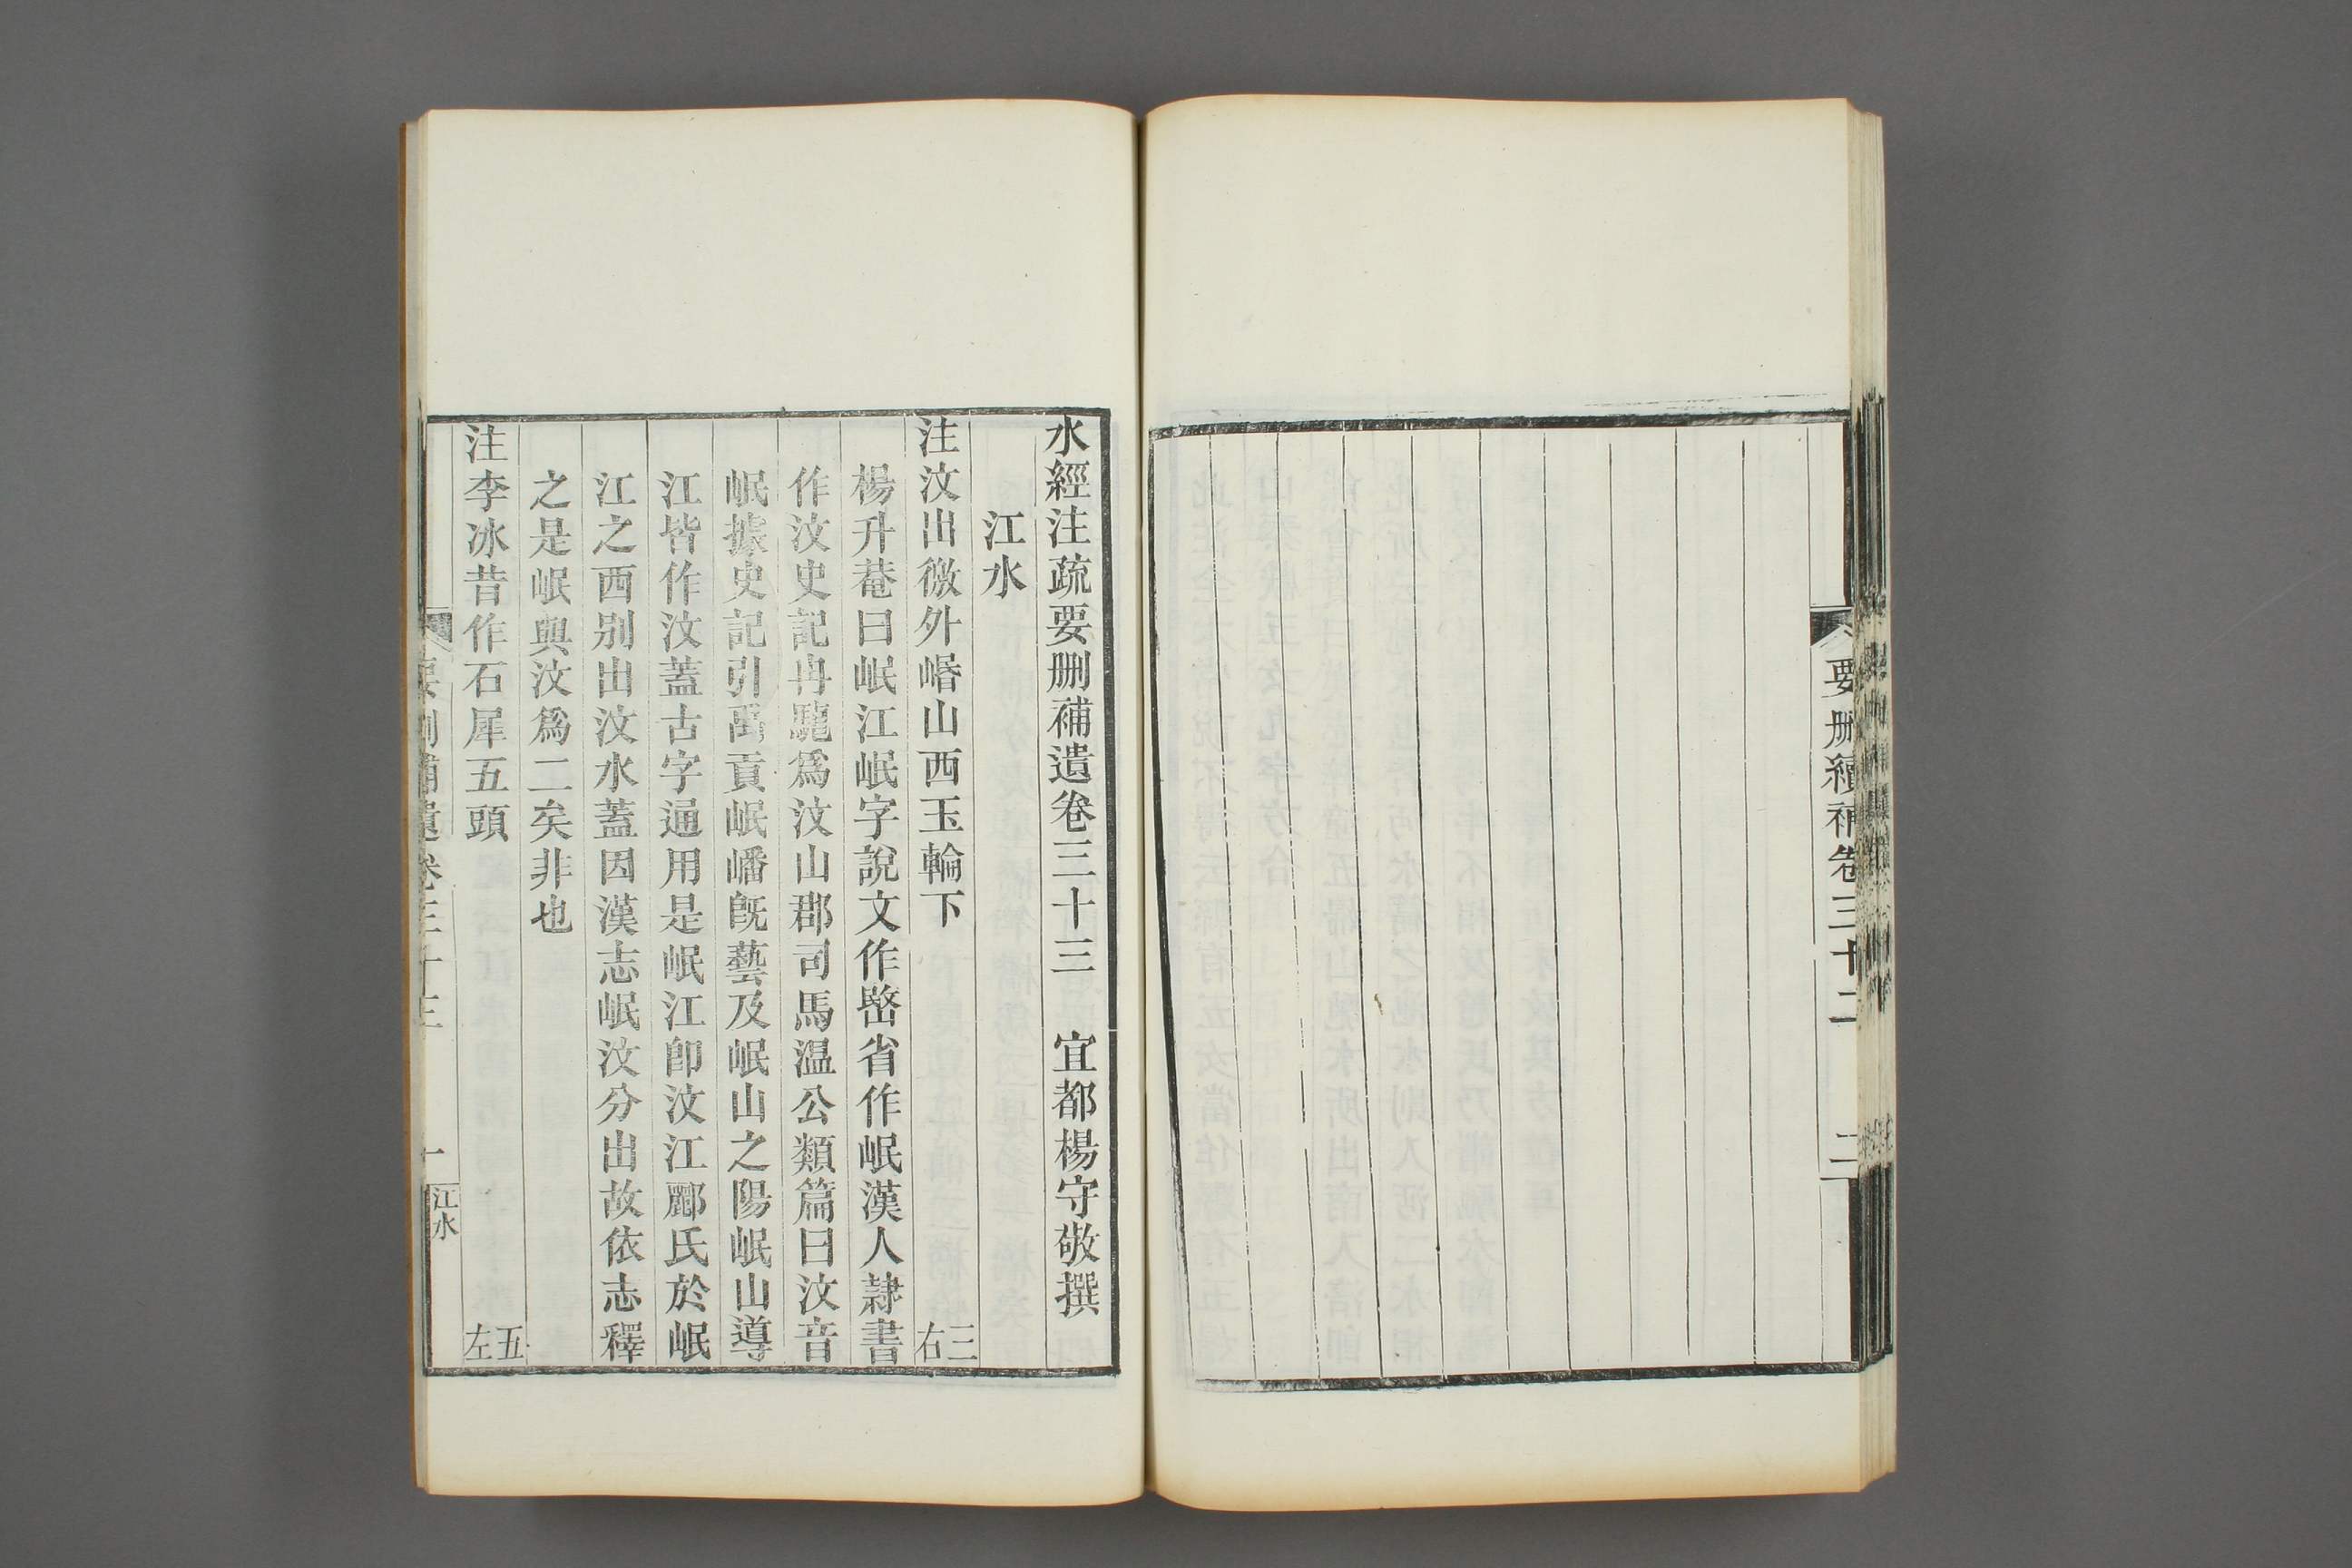 要刪續補卷三十二
二
水經注疏要刪補遺卷三十三 宜都楊守敬撰
江水
注汶出徼外㟭山西玉輪下 三右
楊升菴曰岷江岷字說文作㟭省作岷漢人隸書
作汶史記冉駹爲汶山郡司馬温公類篇曰汶音
岷據史記引禹貢岷嶓旣藝及岷山之陽岷山導
江皆作汶蓋古字通用是岷江卽汶江酈氏於岷
江之西別出汶水蓋因漢志岷汶分出故依志釋
之是岷與汶爲二矣非也
注李冰昔作石犀五頭 五左
要刪補遺卷三十三
一
江水